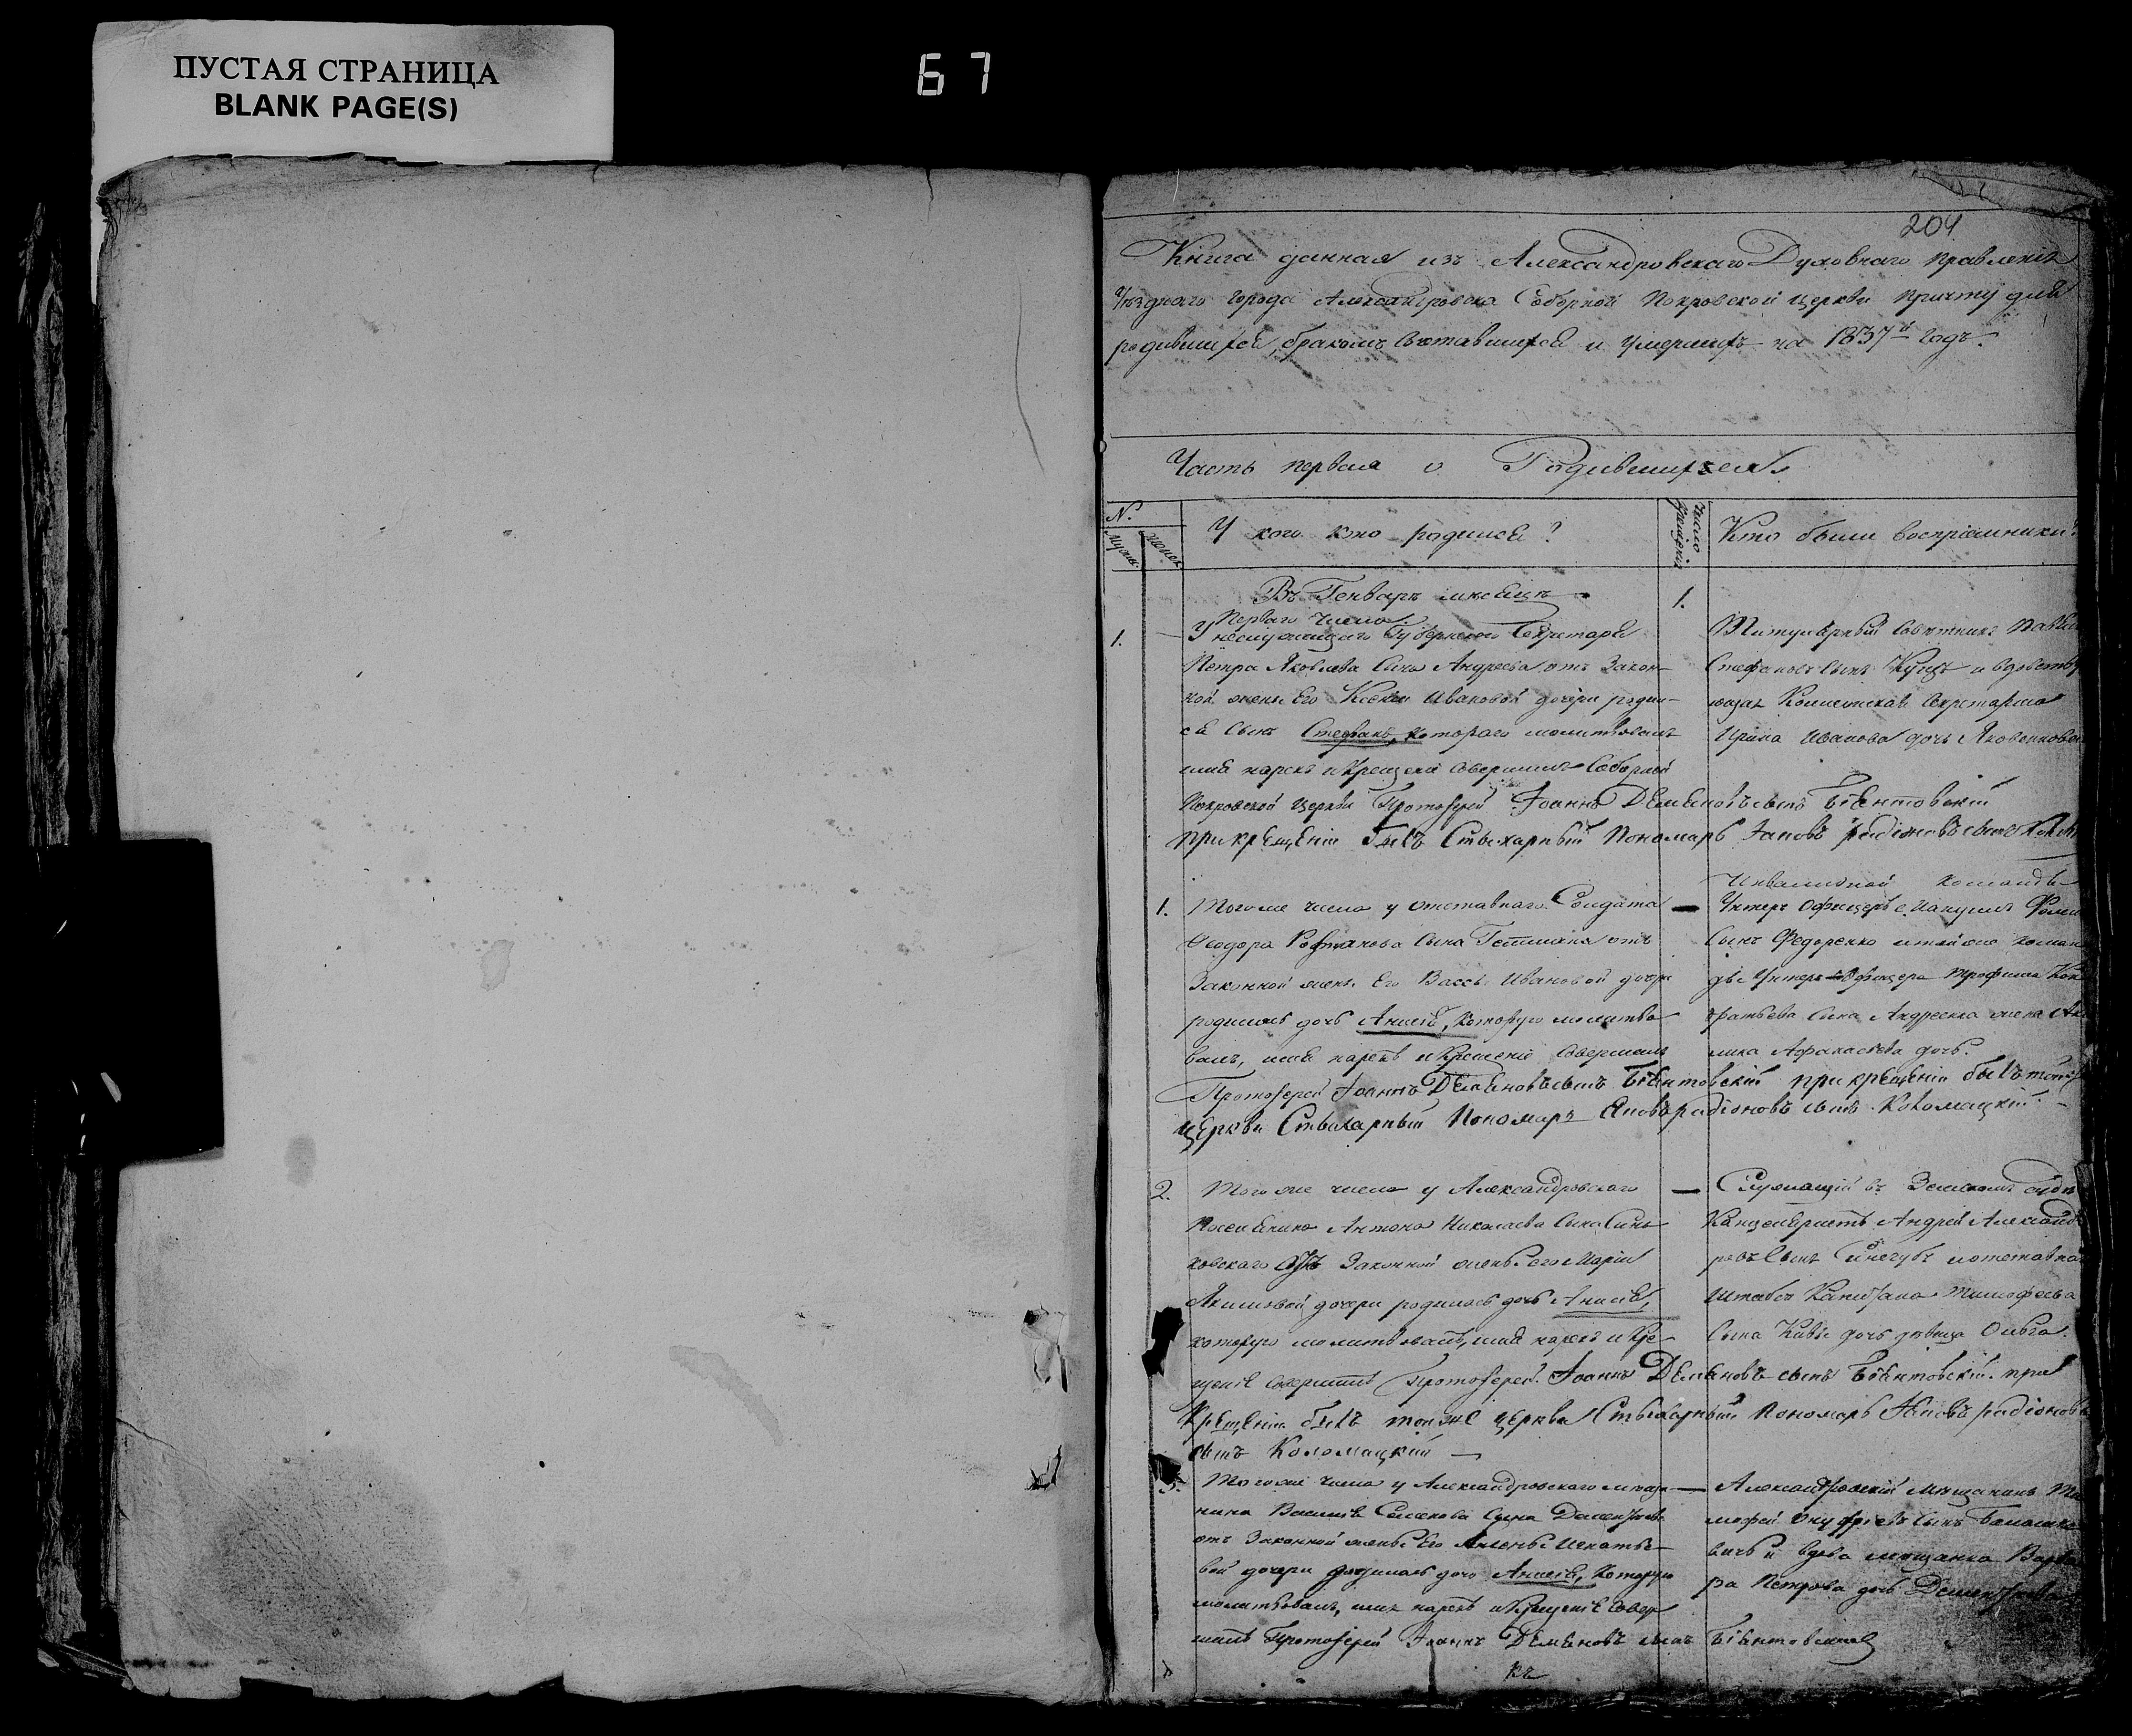 ПУСТАЯ СТРАНИЦА
BLANK PAGE(S)
67
204
Книга данная изъ Александровскаго Духовнаго правленія
уѣзднаго города Александровска Соборной Покровской церкви причту для
родившихся, бракомъ сочетавшихся и умершихъ на 1837й годъ.
Часть первая о Родившихся.
№.
мужск. женск.
У кого кто родился?
число крещенія
Кто были воспріемники?
Въ Генварѣ мѣсяцѣ
Перваго числа.
1.
1.
У неслужащаго Губернскаго Секретаря
Петра Яковлева сына Андреева отъ закон-
ной жены его Ксеніи Ивановой дочери родил-
ся сынъ Стефанъ, котораго молитвовалъ
имя нарекъ и крещеніе совершилъ Соборной
Покровской церкви Протоіерей Іоаннъ Деменовъ сынъ
при крещеніи былъ Стихарный Пономарь Іаковъ Радіоновъ сынъ
Титулярный Совѣтникъ
Стефановъ сынъ Куцъ и вдовству
ющая Коллежская Секретарша
Ирина Иванова дочь
1.
Того же числа у отставнаго Солдата
Феодора сына отъ
законной жены его Вассы Ивановой дочери
родилась дочь Анисія, которую молитво
валъ, имя нарекъ и крещеніе совершилъ
Протоіерей Іоаннъ Деменовъ сынъ при крещеніи былъ той же
церкви Стихарный Пономарь Іаковъ Радіоновъ сынъ Коломацкій
Инвалидной команды
Унтеръ Офицеръ
сынъ Федоренко и той же коман
ды Унтеръ-Офицера Трофима
сына Андреенка жена
Афанасьева дочь.
2.
Того же числа у Александровскаго
Поселянина Антона Николаева сына Синь
ковскаго отъ законной жены его Маріи
Якимовой дочери родилась дочь Анисія,
которую молитвовалъ, имя нарекъ и кре
щеніе совершилъ Протоіерей Іоаннъ Деменовъ сынъ при
крещеніи былъ той же церкви Стихарный Пономарь Іаковъ Радіоновъ
сынъ Коломацкій
Служащій въ Земскомъ судѣ
Канцеляристъ Андрей Александ
ровъ сынъ и отставна
Штабсъ Капитана Тимофеева
сына дочь дѣвица Ольга.
3.
Того же числа у Александровскаго мѣща-
нина Василія Семенова сына
отъ законной жены его Игнатье-
вой дочери родилась дочь Анисія, которую
молитвовалъ, имя нарекъ и крещеніе совер
шилъ Протоіерей Іоаннъ Деменовъ сынъ
Александровскій мѣщанинъ Ти
мофей Онуфріевъ сынъ
и вдова мѣщанка Варва
ра Петрова дочь